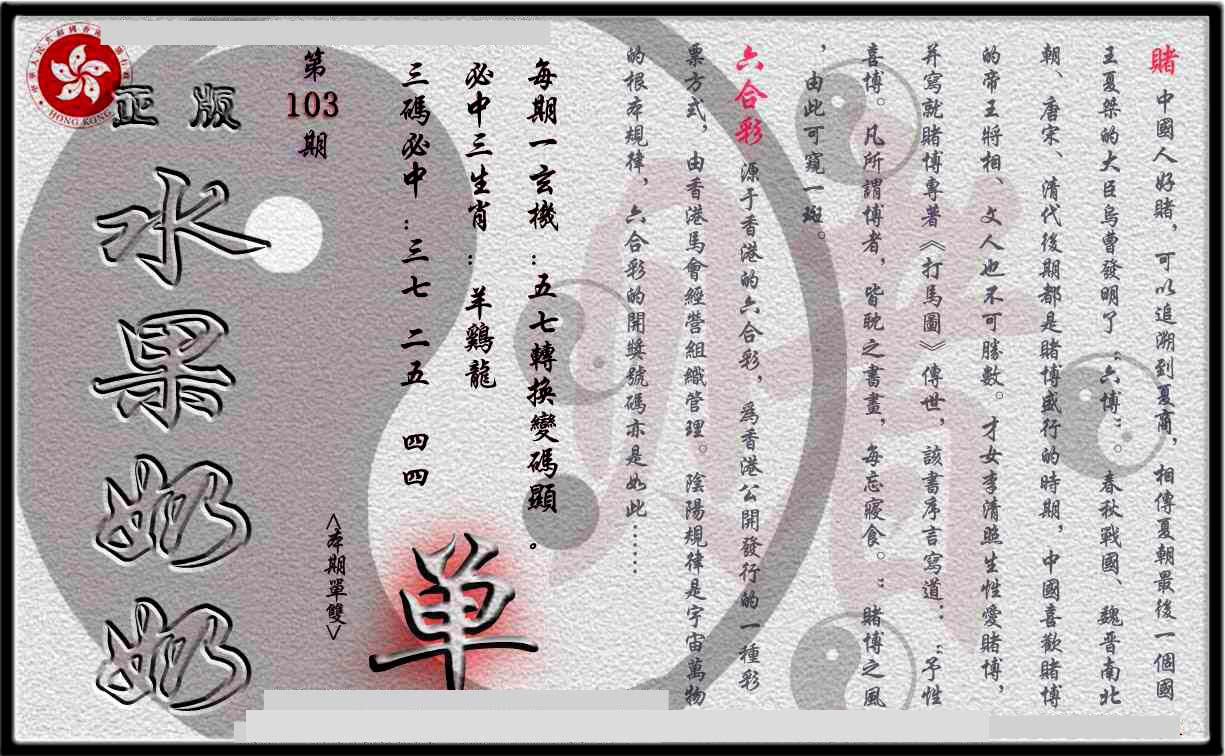 賭 中國人好賭，可以追溯到夏商，相傳夏朝最後一個國
王夏桀的大臣烏曹發明了“六博”。春秋戰國、魏晋南北
朝、唐宋、清代後期都是賭博盛行的時期，中國喜歡賭博
的帝王將相、文人也不可勝數。才女李清照生性愛賭博，
并寫就賭博專著《打馬圖》傳世，該書序言寫道：“予性
喜博。凡所謂博者，皆耽之書畫，每忘寢食。”賭博之風
，由此可窺一斑。
六合彩 源于香港的六合彩，為香港公開發行的一種彩
票方式，由香港馬會經營組織管理。陰陽規律是宇宙萬物
的根本規律，六合彩的開獎號碼亦是如此……
每期一玄機：五七轉換變碼顯。
必中三生肖：羊鷄龍
三碼必中：三七 二五 四四
单
第103期
<本期單雙>
正版
水果奶奶
HONG KONG